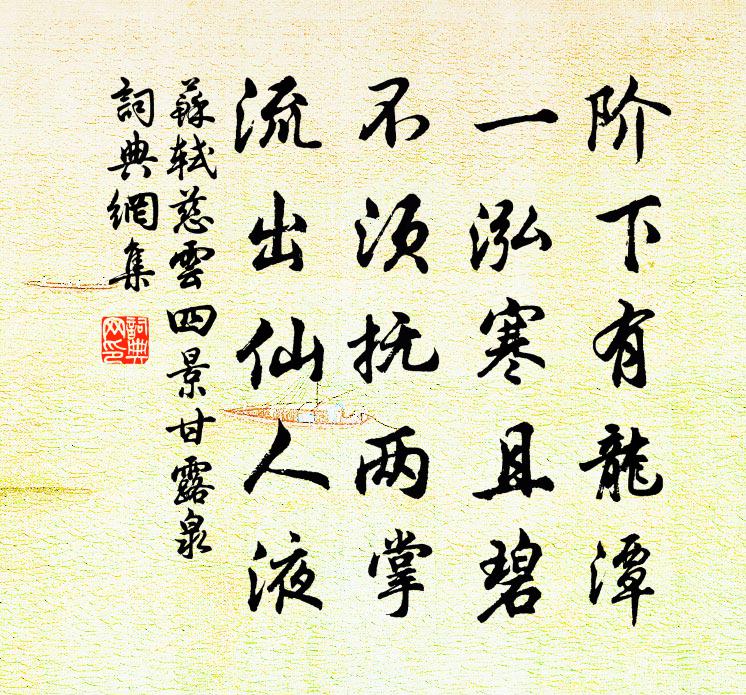 阶下有龍潭
一泓寒且碧
不须抚两掌
流出仙人液
蘇軾慈雲四景甘露泉
詞典網集
詞典网印